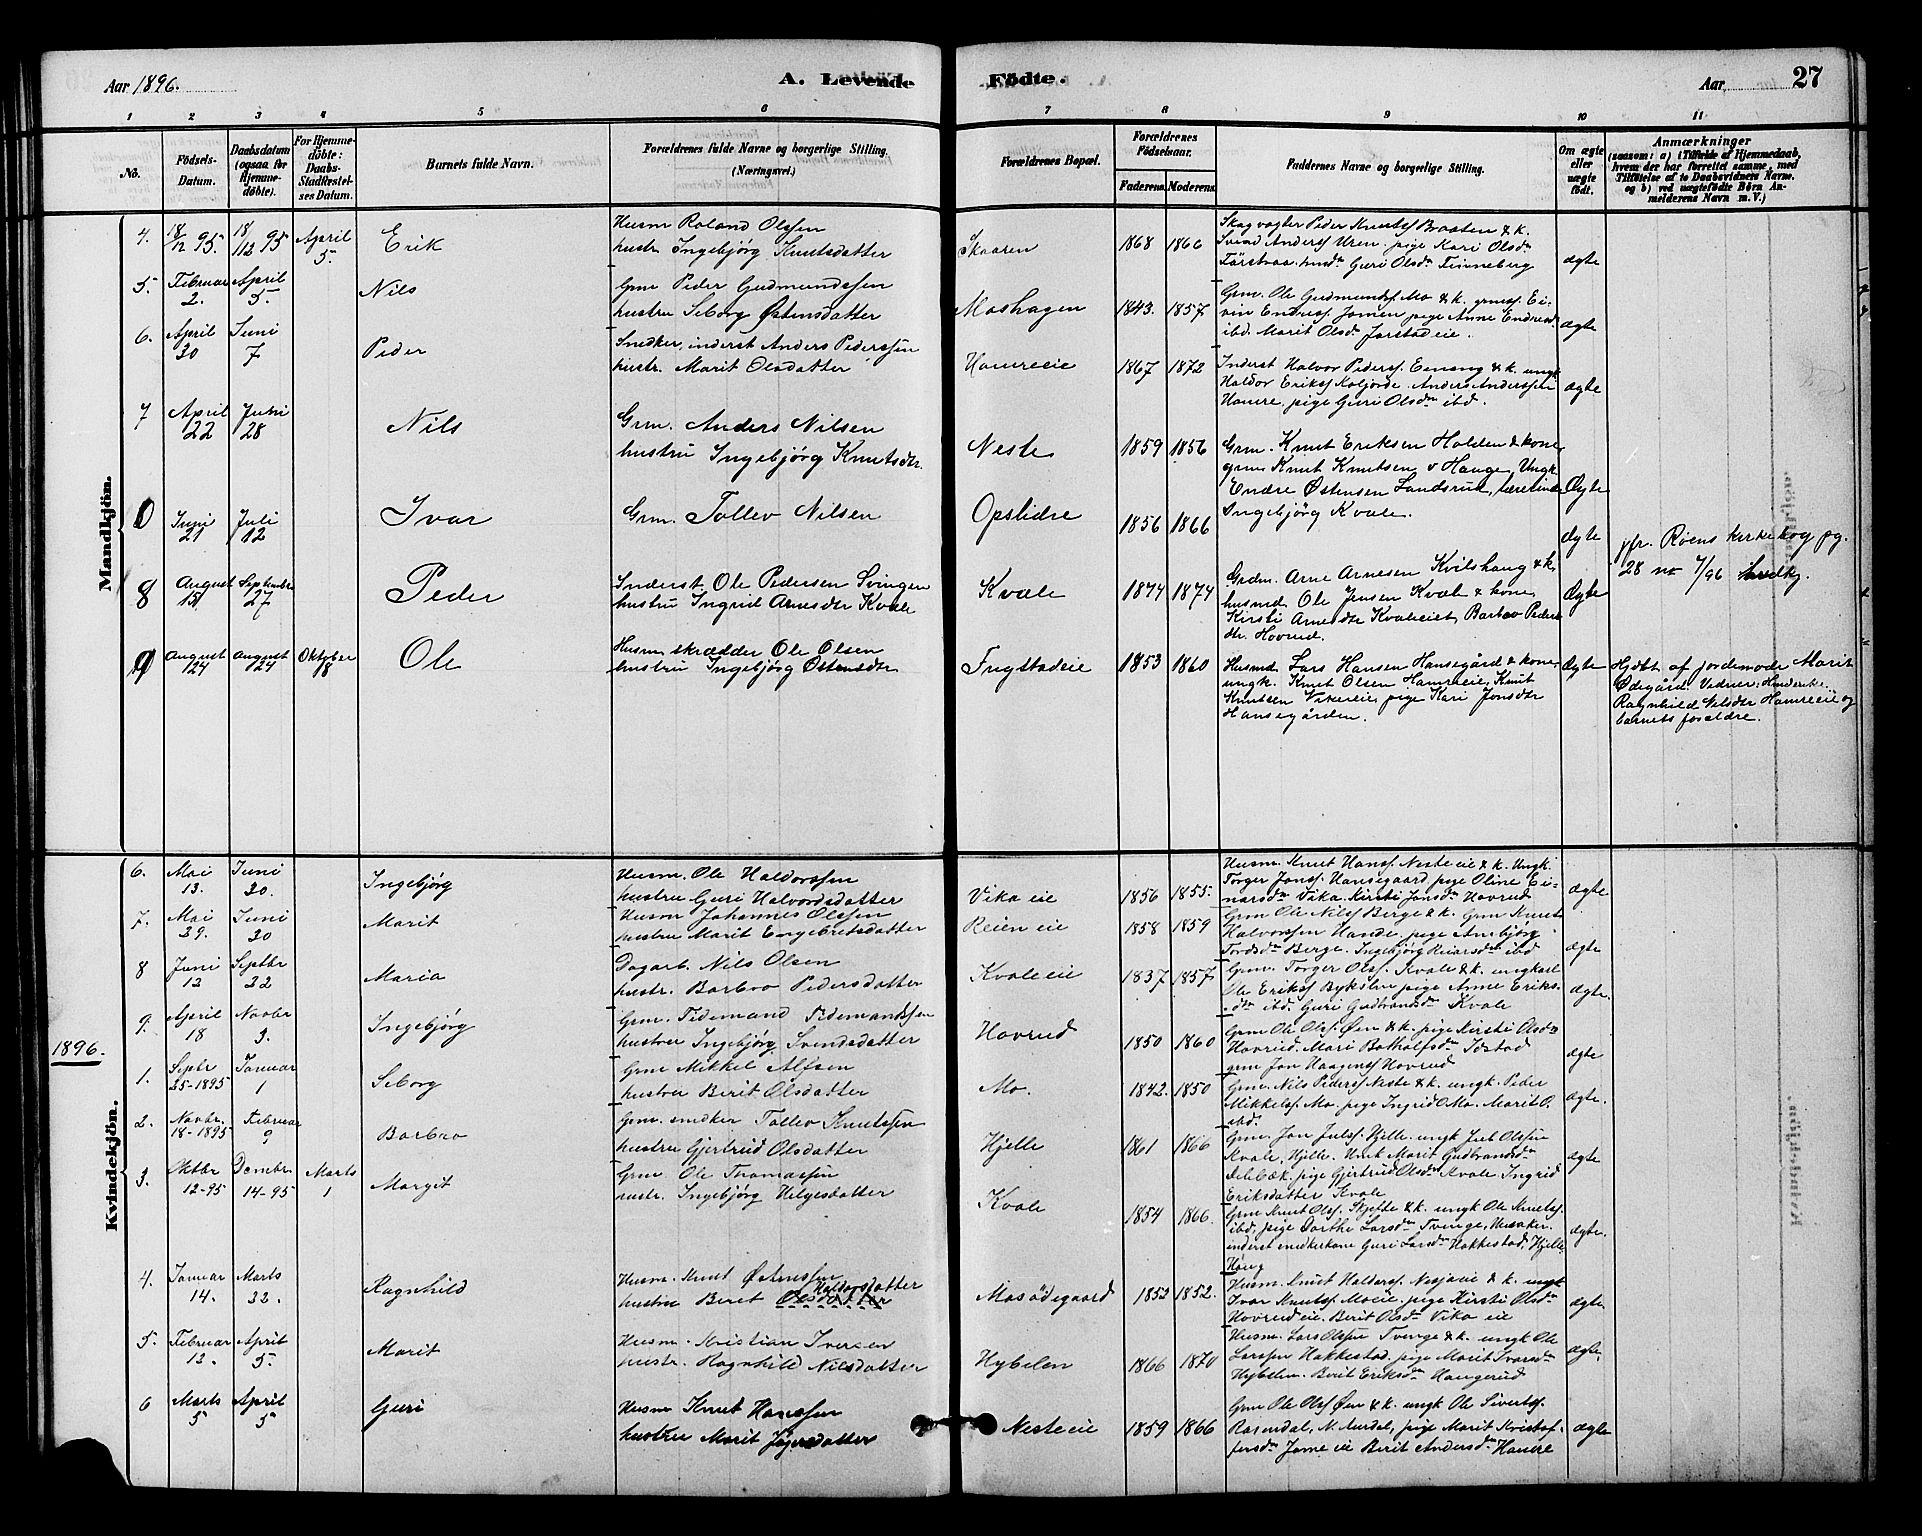 Aar 1896.
A. Levende
Födte.
Aar
27
1 2 3 4 5 6 7 8 9 10 11
No.
Födsels-Datum.
Daabsdatum (ogsaa for Hjemme-döbte).
For Hjemme-döbte: Daabs-Stadfæstel-ses Datum.
Barnets fulde Navn.
Forældrenes fulde Navne og borgerlige Stilling. (Næringsvei.)
Forældrenes Bopæl.
Forældrenes Födselsaar.
Faderens. Moderens.
Faddernes Navne og borgerlige Stilling.
Om ægte eller uægte födt.
Anmærkninger
(saasom: a) i Tilfælde af Hjemmedaab,
hvem der har forrettet samme, med
Tilföielse af to Daabsvidners Navne.
og b) ved uægtefödte Börn An-
melderens Navn m. V.)
Mandkjön.
4. 18/12 95 18/12 95 April 5. Erik
Husm Roland Olssen
hustr. Ingebjörg Knutsdatter
Skaaren 1868 1866
Skogvogter Peder Knuts. Braaten & k.
Svend Anderss Uren. pige Kari Olsdr
Guri Olsdr Finneberg
ægte
5. Februar 2. April 5. Nils
Grm Peder Gudmundssen
hustru Seborg Østensdatter
Moshagen 1843. 1857
Grm. Ole Gudmundss Mo & k. grmss. Ei-
vin Endress. Jomen pige Anne Endresdr
ibd. Marit Olsdr Jarstadeie.
ægte
6. April 30 Juni 7 Peder
Snedker, inderst Anders Pederssen
hustr. Marit Olsdatter
Hamreeie 1867 1872
Inderst Halvor Pederss. & k. ungk
Haldor Erikss Koljorde. Anders Anderssen
Hamre, pige Guri Olsdr ibd.
ægte
7 April 22 Juni 28 Nils
Grm. Anders Nilsen
hustru Ingebjörg Knutsdtr.
Neste 1859 1856
Grm. Knut Eriksen Holden & kone
grm Knut Knutsen v Hauge, Ungk
Endre Østensen Landsrud, lærerinde
Ingebjörg Kvale.
Ægte
0 Juni 21 Juli 12 Ivar
Grm. Tollev Nilsen
Opslidre 1856 1866
ægte
jfr. Røens kirkebog pg.
28 no 7/96
8 August 15 September 27 Peder
Inderst Ole Pedersen Svingen
hustru Ingrid Arnesdtr Kvale
Kvale 1874 1874
Grdm. Arne Arnesen Kvilshaug & k.
husmd. Ole Jensen Kvale & kone
Kirsti Arnesdtr Kvaleeiet, Barbro Peders
dtr. Hovrud.
Ægte
9 August 24 August 24 Oktober 18 Ole
Husm skrædder Ole Olsen
hustru Ingebjörg Østensdtr
Fugstadeie 1853 1860
Husmd. Lars Hansen Hansegård & kone
ungk. Knut Olsen Hamreeie, Knut
Knutsen Vikereie, pige Kari Jonsdtr
Hansegården.
Ægte
Hjdbt. af jordemoder Marit
Ødegård. Vidner:
Ragnhild Nilsdtr Hamreeie og
barnets forældre.
1896.
Kvindekjön.
6. Mai 13. Juni 30. Ingebjörg
Husm. Ole Haldorssen
hustru Guri Halvordsdatter
Vika eie 1856 1855.
Husm. Knut Hanss. Neste eie & k. Ungk.
Torger Jonss. Hansegaard pige Oline Ei-
narsdr Vika. Kirsti Jonsdr Hovrud
ægte
7. Mai 29. Juni 30 Marit
Husm Johannes Olssen
hustru Marit Engebretsdatter
Reien eie 1858 1859
Grm Ole Nilss Berge & k. Grm Knut
Halvorssen Hande, pige Annbjörg
Tordsdr Berge. Ingebjörg Reiarsdr ibd
ægte
8 Juni 13 Septbr 22 Maria
Dagarb. Nils Olsen
hustr. Barbro Pedersdatter
Kvaleeie 1837 1857
Grm. Torger Olss. Kvale & k. ungkarl
Ole Erikss Bykslen pige Anne Eriks-
dr ibd. Guri Gudbrandsdr Kvale
ægte.
9. April 18 Novbr 3. Ingebjörg
Grm. Tidemand Tidemandssen
hustru Ingebjörg Svendsdatter
Hovrud 1850 1860
Grm Ole Olss. Øen & k. pige Kirsti Olsdr
Hovrud. Mari Botholfsdr Jdstad
grm Jon Haagenss Hovrud
ægte
1. Septbr 25-1895 Januar 1 Seborg
Grm Mikkel Alfsen
hustru Berit Olsdatter
Mo. 1842. 1850
Grm. Nils Pederss Neste & k. ungk. Peder
Mikkelss. Mo. pige Ingrid O. Mo. Marit O.
ibd.
ægte.
2. Novbr. 18-1895 Februar 9 Barbro
Grm. snedker Tollev Knutssen
hustru Gjertrud Olsdatter
Hjelle 1861 1866
Grm. Jon Julss. Hjelle. ungk Juel Olssen
Kvale, Hjelle. Marit Gudbrandsdr
pige Gjertrud Olsdr Kvale Ingrid
Eriksdatter Kvale
ægte
3. Oktbr 12-95 Dcember 14-95 Marts 1 Margit
Grm Ole Thomassen
hustr. Ingebjörg Helgesdatter
Kvale 1854 1866.
Grm Knut Olss. Stjefte & k. ungk Ole Knutss.
ibd, pige Dorthe Larsdr Tvenge,
inderst snedkerkone Guri Larsdr Hakkestad, Hjelle
Haug
ægte.
4. Januar 14. Marts 22. Ragnhild
Husm. Knut Østenssen
hustru Beret Olsdatter Haldorsdatter
Mosødegaard 1852 1852.
Husm. Knut Haldorss. Nesjaeie & k. ungk
Ivar Knutss. Moeie. pige Kirsti Olsdr
Hovrud eie. Berit Olsdr Vika eie
ægte.
5. Februar 13. April 5. Marit
Husm. Kristian Iversen
hustr. Ragnhild Nilsdatter
Hybelen 1866 1870
Husm. Lars Olssen Tvenge & k. ungk Ole
Larssen Hakkestad. pige Marit Ivarsdr
Hybelen. Berit Eriksdr Haugerud
ægte.
6 Marts 5 April 5 Guri
Husm Knut Hanssen
hustru Marit Jögersdatter
Nesteeie 1859 1866
Grm Ole Olss Øen & k. ungk Ole Sivertss.
Rosendal, N. Aurdal, pige Marit Kristof-
fersdr Jome eie Berit Andersdr Hamre
ægte